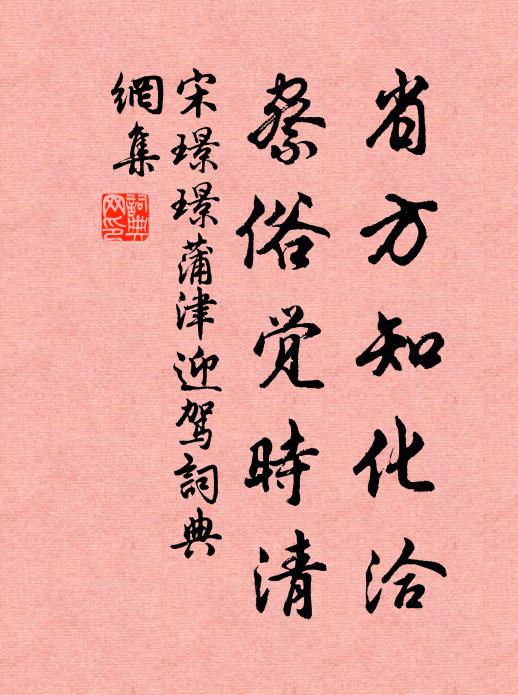 省方知化洽
察俗觉時清
宋璟璟蒲津迎驾詞典
網集
詞典网印